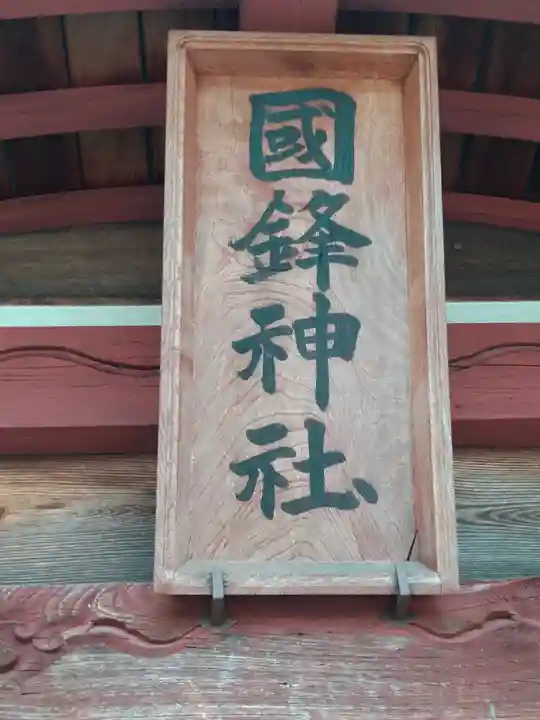 國鋒神社